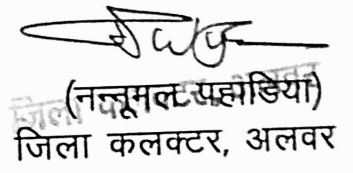 (नन्नूमल पहाडिया)
जिला कलक्टर, अलवर